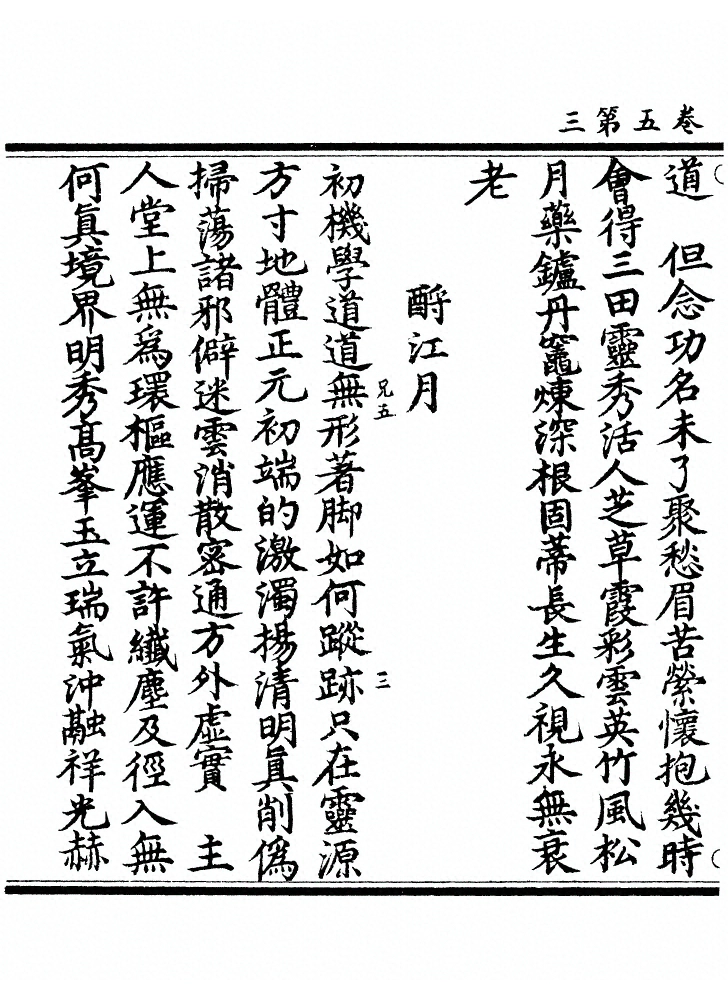 卷五第三
道　但念功名未了聚愁眉苦縈懷抱幾時
會得三田靈秀活人芝草霞彩雲英竹風松
月藥鑪丹竈煉深根固蔕長生久視永無衰
老
酹江月
初機學道道無形著脚如何蹤跡只在靈源
兄五
三
方寸地體正元初端的激濁揚清明眞削僞
掃蕩諸邪僻迷雲消散密通方外虛實　主
人堂上無爲環樞應運不許纖塵及徑入無
何眞境界明秀高峯玉立瑞氣沖融祥光赫